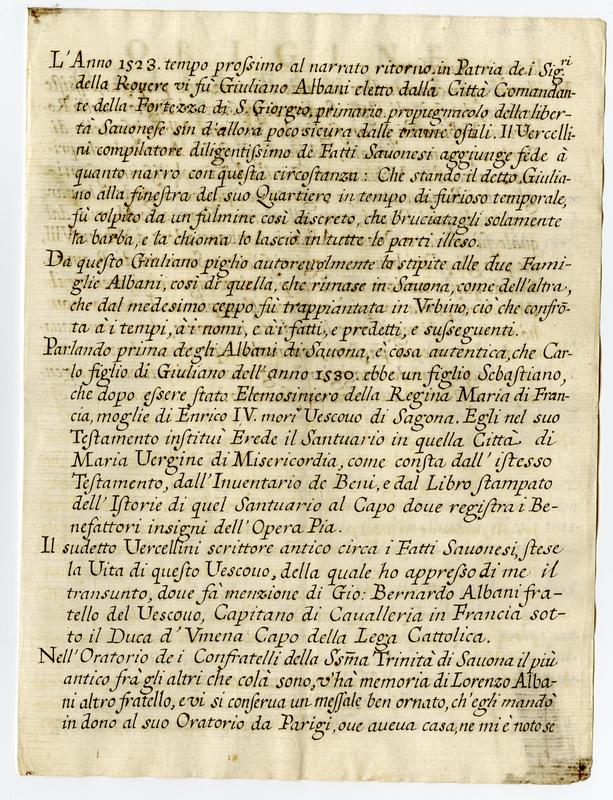 L'Anno 1523. tempo proſsimo al narrato ritorno in Patria de i Sig.ri
della Rouere vi fù Giuliano Albani eletto dalla Città Comandan-
te della Fortezza di S. Giorgio, primario propugnacolo della liber-
tà Sauonese sin d'allora poco sicura dalle trame ostili. Il Vercelli-
ni compilatore diligentiſsimo de Fatti Sauonesi aggiunge fede à
quanto narro con questa circostanza: Che stando il detto Giulia-
no alla finestra del suo Quartiero in tempo di furioso temporale,
fù colpito da un fulmine così discreto, che bruciatagli solamente
la barba, e la chioma lo lasciò in tutte le parti illeso.
Da questo Giuliano piglio autoreuolmente lo stipite alle due Fami-
glie Albani, così di quella, che rimase in Sauona, come dell'altra,
che dal medesimo ceppo fù trappiantata in Vrbino, ciò che confrõ-
ta à i tempi, à i nomi, e à i fatti, e predetti, e suſseguenti.
Parlando prima degli Albani di Sauona, è cosa autentica, che Car-
lo figlio di Giuliano dell'anno 1530. ebbe un figlio Sebastiano,
che dopo eſsere stato Elemosiniero della Regina Maria di Fran-
cia, moglie di Enrico IV. morì Uescouo di Sagona. Egli nel suo
Testamento instituì Erede il Santuario in quella Città di
Maria Uergine di Misericordia, come consta dall' istesso
Testamento, dall'Inuentario de Beni, e dal Libro stampato
dell'Istorie di quel Santuario al Capo doue registra i Be-
nefattori insigni dell'Opera Pia.
Il sudetto Uercellini scrittore antico circa i Fatti Sauonesi, stese
la Uita di questo Uescouo, della quale ho appreſso di me il
transunto, doue fà menzione di Gio: Bernardo Albani fra-
tello del Uescouo, Capitano di Caualleria in Francia sot-
to il Duca d'Vmena Capo della Lega Cattolica.
Nell'Oratorio de i Confratelli della Ssm̃a Trinità di Sauona il più
antico frà gli altri che colà sono, v'hà memoria di Lorenzo Alba-
ni altro fratello, e vi si conserua un meſsale ben ornato, ch'egli mandò
in dono al suo Oratorio da Parigi, oue aueua casa, ne mi è noto se